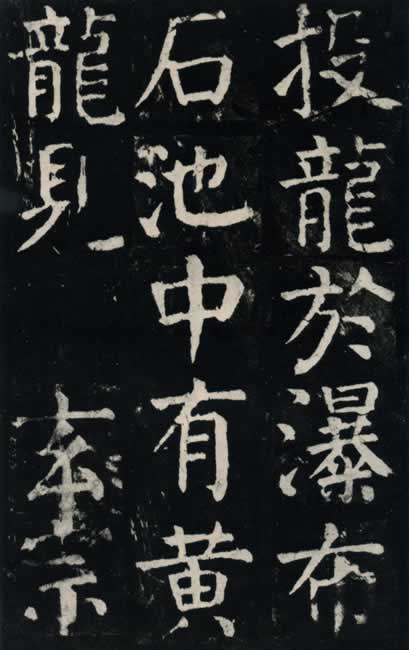 投龍於瀑布
石池中有黃
龍見　玄宗